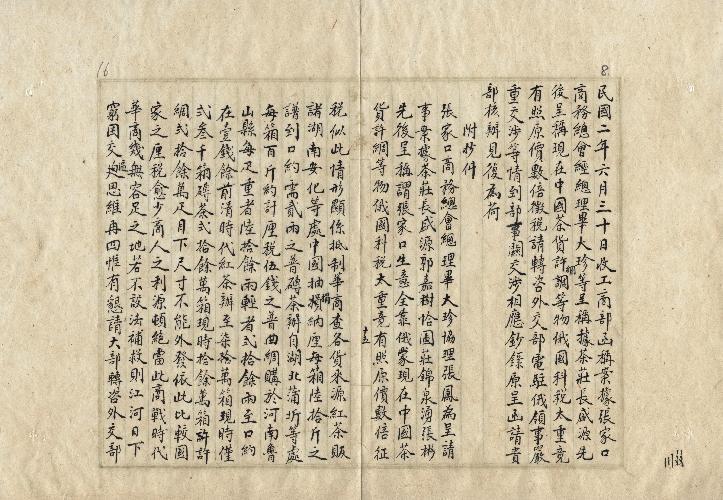 8
民國二年六月三十日收工商部函稱案據張家口
商務總會總理畢大珍等呈稱據茶莊長盛源先
後呈稱現在中國茶貨許綢等物俄國科稅太重竟
有照原價數倍徵稅請轉咨外交部電駐俄領事嚴
重交涉等情到部事關交涉相應鈔錄原呈函請貴
部核辦見復為荷
附抄件
張家口商務總會總理畢大珍協理張鳳為呈請
事案據茶莊長盛源郭嘉樹恰圖莊錦泉湧張彬
先後呈稱謂張家口生意全靠俄蒙現在中國茶
貨許綢等物俄國科稅太重竟有照原價數倍征
十五
16
稅似此情形顯係抵制華商查各貨來源紅茶販
諸湖南安化等處中國抽稅納厘每箱陸拾斤之
譜到口約需貳兩之普磚茶辦自湖北蒲圻等處
每箱百斤約計厘稅伍錢之普曲綢購於河南魯
山縣每疋重者陸拾餘兩輕者弍拾餘兩至口約
在壹錢餘前清時代紅茶辦至柒拾萬箱現時僅
弍叁千箱磚茶弍拾餘萬箱現時拾餘萬箱許許
綢弍拾餘萬疋目下尺寸不能外發依此比較國
家之厘稅愈少商人之利源頓絕當此商戰時代
華商幾無容足之地若不設法補救則江河日下
窮困交迫思維再四惟有懇請大部轉咨外交部